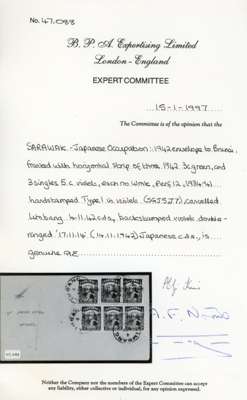 No. 47,088
B. P. A. Expertising Limited
London - England
EXPERT COMMITTEE
15-1-1997
The Committee is of the opinion that the
SARAWAK - Japanese Occupation: 1942 envelope to Brunei,
franked with horizontal strip of three 1942 3c. green, and
3 singles 5c. violet, each no wmk, Perf 12, (1934/41)
handstamped Type 1 in violet (SGJ5, J7), cancelled
Limbang 4.11.42 c.d.s., backstamped violet double-
ringed '17.11.14' (14.11.1942) Japanese c.d.s., is
genuine
47,088
Neither the Company nor the members of the Expert Committee can accept
any liability, either collective or individual, for any opinion expressed.